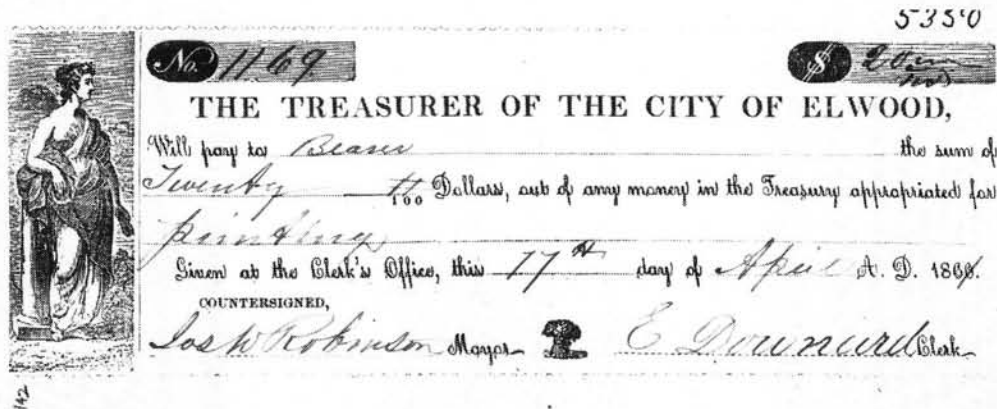 5350
No. 1169
$ 20
THE TREASURER OF THE CITY OF ELWOOD,
Will pay to Bearer the sum of
Twenty /100 Dollars, out of any money in the Treasury appropriated for
printing
Given at the Clerk's Office, this 17th day of April A. D. 186
COUNTERSIGNED,
Jos W Robinson Mayor E Downard Clerk